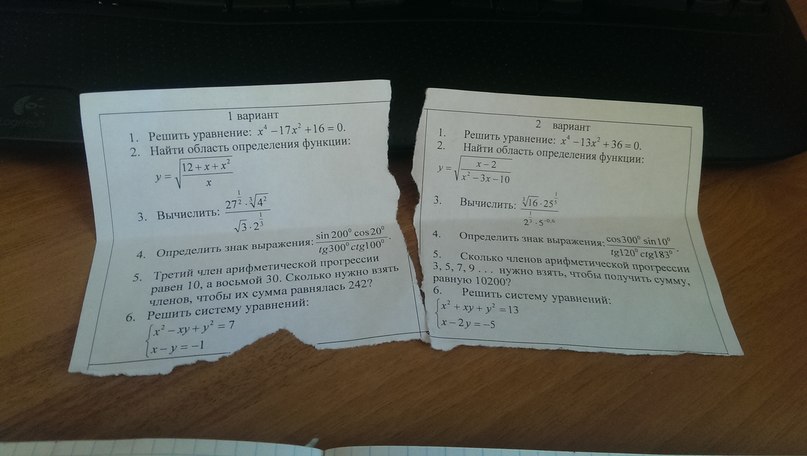 1 вариант
1. Решить уравнение: x⁴ −17x² +16 = 0.
2. Найти область определения функции:
y = √((12 + x + x²)/x)
3. Вычислить: (27^(1/2) · ∛(4²))/(√3 · 2^(1/3))
4. Определить знак выражения: (sin 200⁰ cos 20⁰)/(tg300⁰ ctg100⁰).
5. Третий член арифметической прогрессии
равен 10, а восьмой 30. Сколько нужно взять
членов, чтобы их сумма равнялась 242?
6. Решить систему уравнений:
{x² − xy + y² = 7
x − y = −1
2 вариант
1. Решить уравнение: x⁴ −13x² + 36 = 0.
2. Найти область определения функции:
y = √((x − 2)/(x² − 3x − 10))
3. Вычислить:
4. Определить знак выражения: (cos 300⁰ sin 10⁰)/(tg120⁰ ctg183⁰).
5. Сколько членов арифметической прогрессии
3, 5, 7, 9 . . . нужно взять, чтобы получить сумму,
равную 10200?
6. Решить систему уравнений:
{x² + xy + y² = 13
x − 2y = −5